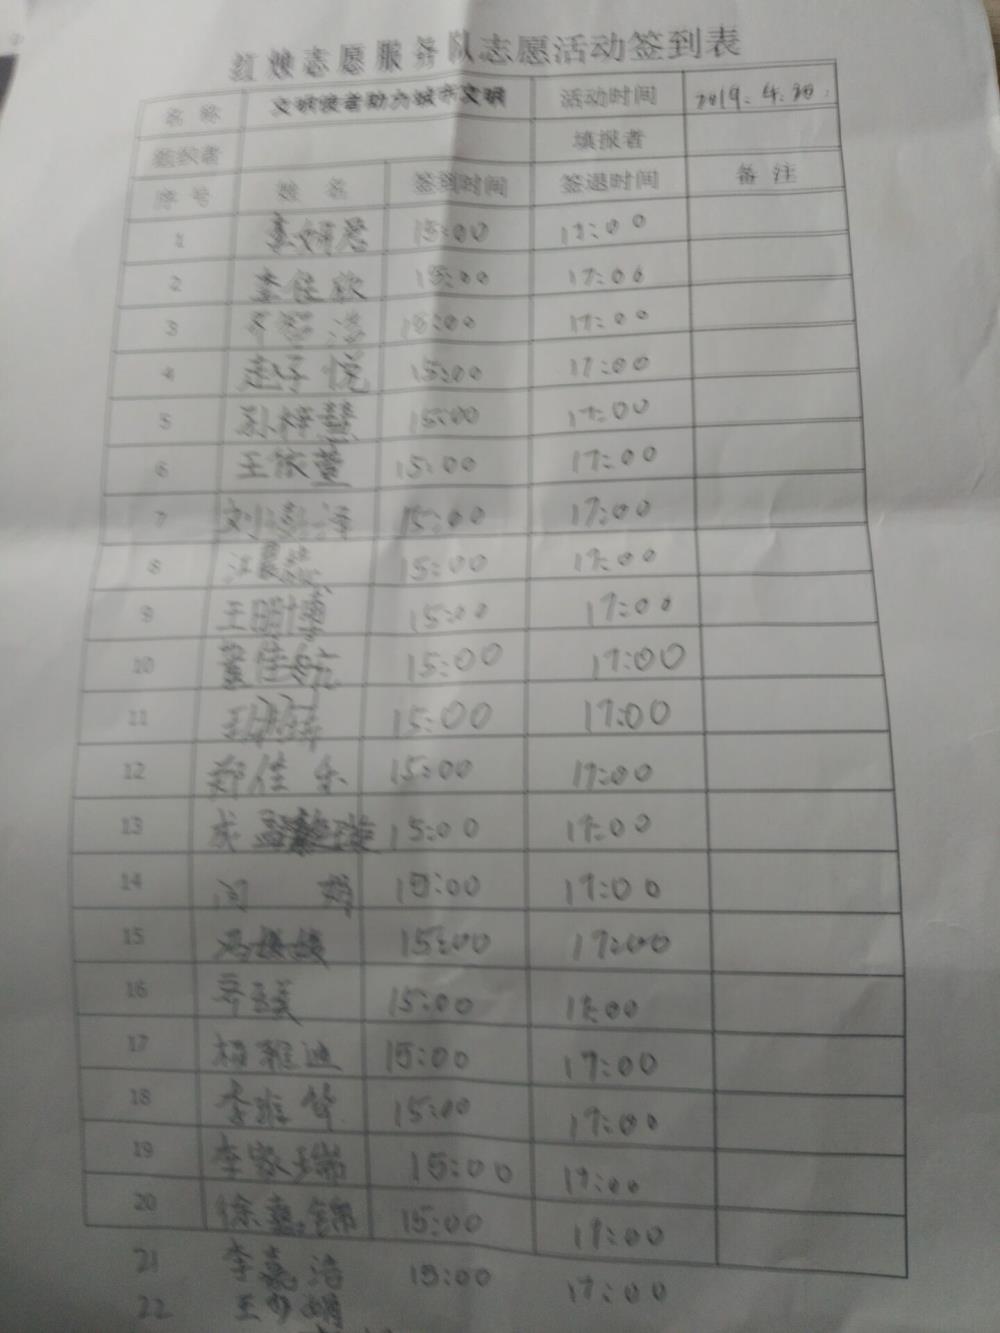 红烛志愿服务队志愿活动签到表
名 称 文明使者助力城市文明 活动时间 2019.4.20.
组织者 填报者
序 号 姓 名 签到时间 签退时间 备 注
1 15:00 17:00
2 李佳欣 15:00 17:00
3 15:00 17:00
4 赵子悦 15:00 17:00
5 孙梓慧 15:00 17:00
6 王依萱 15:00 17:00
7 刘澎泽 15:00 17:00
8 15:00 17:00
9 王鹏博 15:00 17:00
10 董佳航 15:00 17:00
11 15:00 17:00
12 郑佳乐 15:00 17:00
13 15:00 17:00
14 15:00 17:00
15 冯媛媛 15:00 17:00
16 15:00 17:00
17 杨雅迪 15:00 17:00
18 15:00 17:00
19 李家瑞 15:00 17:00
20 徐嘉锦 15:00 17:00
21 李嘉浩 15:00 17:00
22